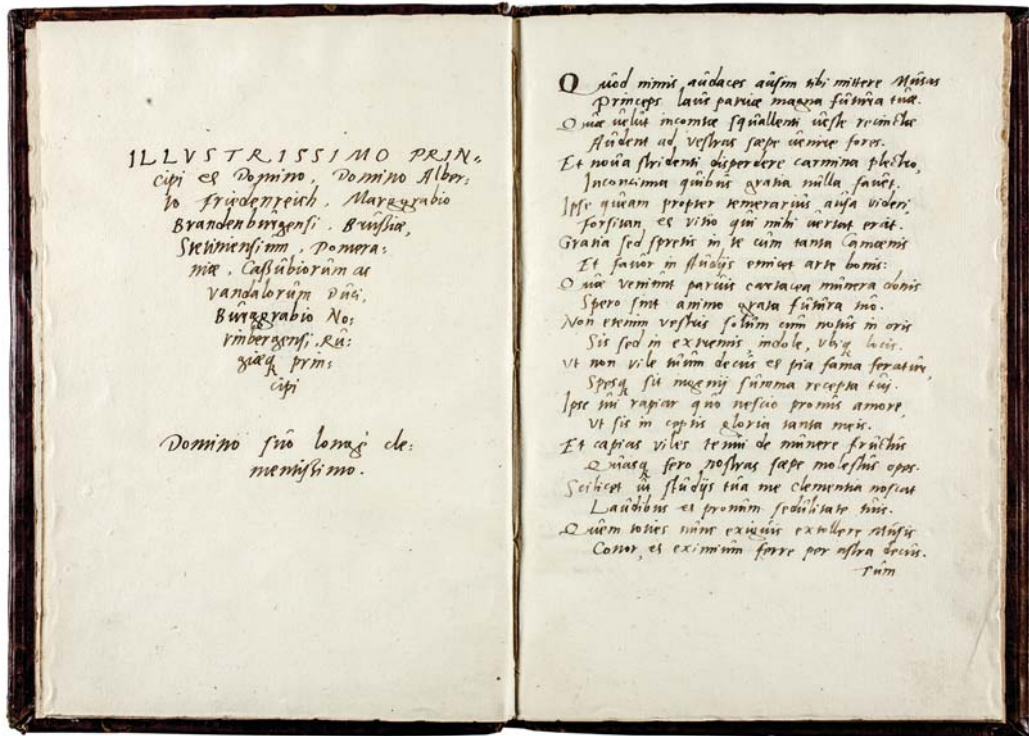 ILLVSTRISSIMO PRIN-
cipi et Domino, Domino Alber-
to Friedenreich, Marggrabio
Brandenburgensi, Brussiæ,
Stetinensium, Pomera-
niæ, Cassubiorum ac
Vandalorum Duci,
Burggrabio No-
rinbergensi, Ru-
giæq prin-
cipi
Domino suo longè cle-
mentissimo.
Quod nimis audaces ausim tibi mittere Musas
Princeps laus patriæ magna futura tuæ.
Quæ velut incomtæ squallenti veste recinctæ
Audent ad vestras sæpe venire fores.
Et noua stridenti disperdere carmina plectro,
Inconcinna quibus gratia nulla fauet.
Ipse queam propter temerarius ausa videri,
Forsitan et vitio qui mihi vertat erit.
Gratia sed spretis in te cum tanta Camœnis
Et fauor in studijs emicet arte bonis:
Quæ veniunt paruis cartacea munera donis
Spero sint animo grata futura tuo.
Non etenim vestris solum cum notus in oris
Sis sed in externis indole, vbiq locis.
Vt non vile tuum decus et pia fama feratur,
Spesq sit ingenij summa recepta tui.
Ipse tui rapiar quo nescio promus amore,
Vt sis in cœptis gloria tanta meis.
Et capias viles tenui de munere fructus
Quasq fero nostras sæpe molestus opes.
Scilicet ut studijs tua me clementia noscat
Laudibus et pronum sedulitate tuis.
Quem toties nunc exiguis extollere Musis
Conor, et eximium ferre per astra decus.
Tum